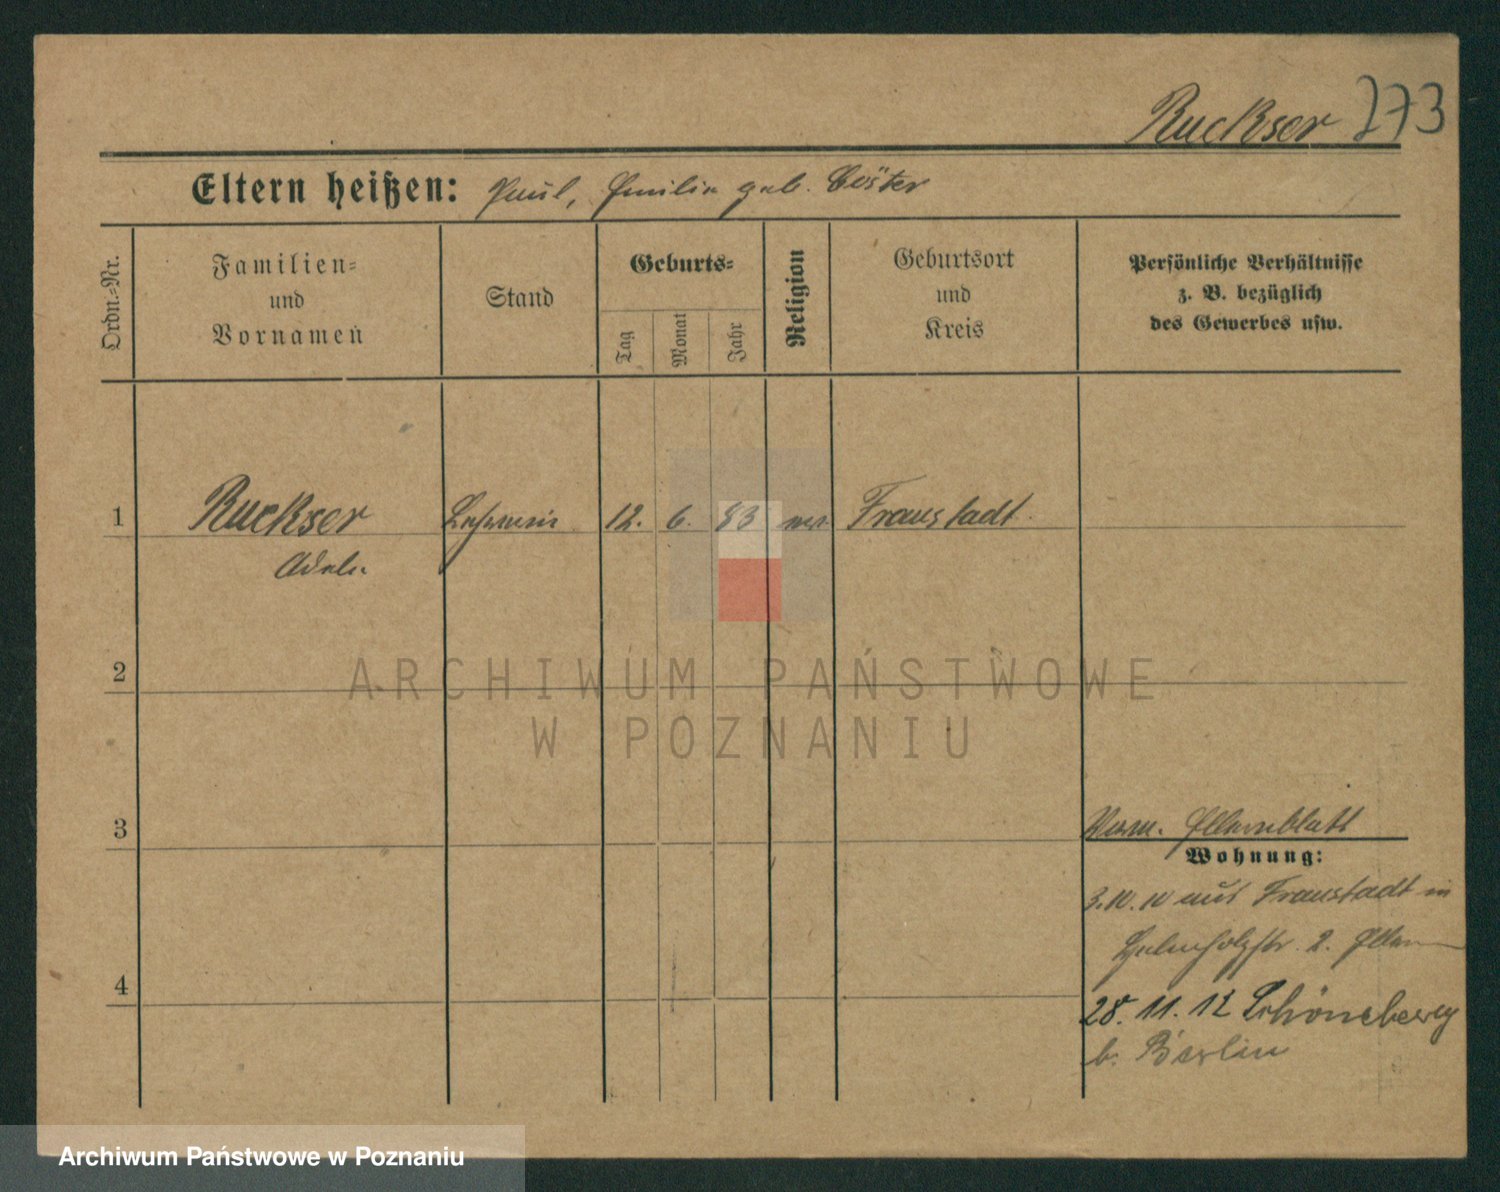 Ruckser 273
Eltern heißen: Paul, Emilie geb. Cöster
Ordn.-Nr.
Familien-
und
Vornamen
Stand
Geburts-
Tag
Monat
Jahr
Religion
Geburtsort
und
Kreis
Persönliche Verhältnisse
z. B. bezüglich
des Gewerbes usw.
1 Ruckser Lehrerin 12. 6. 83 Fraustadt
Adele
2
ARCHIWUM PAŃSTWOWE
W POZNANIU
3
Elternblatt
Wohnung:
3.10.10 aus Fraustadt in
2. Eltern
4
28. 11. 12 Schöneberg
b. Berlin
Archiwum Państwowe w Poznaniu